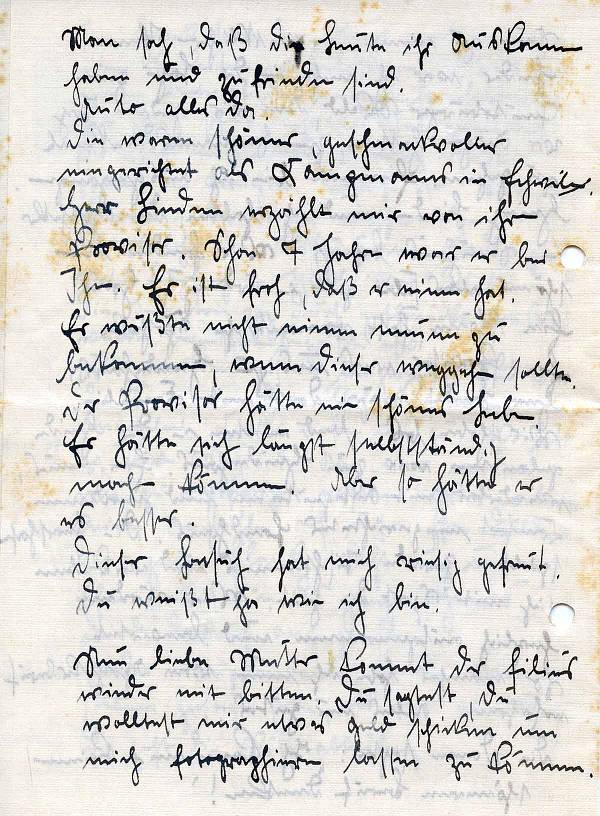 Man sah, daß die Leute ihr Auskommen
haben und zufrieden sind.
Auto alles da.
Die waren schöner, geschmackvoller
eingerichtet als Kampmanns in
Herr Linden erzählt mir von ihr
Provisor. Schon 7 Jahre war er bei
Ihn. Er ist froh, daß er einen hat.
Er wüßte nicht einen neuen zu
bekommen, wenn dieser weggehen sollte.
Der Provisor hätte ein schönes Leben.
Er hätte sich längst selbstständig
machen können. Aber so hätte er
es besser.
Dieser Besuch hat mich riesig gefreut.
Du weißt ja wie ich bin.
Nun liebe Mutter kommt der Filius
wieder mit bitten. Du sagtest, Du
wolltest mir etwas Geld schicken um
mich fotographieren lassen zu können.